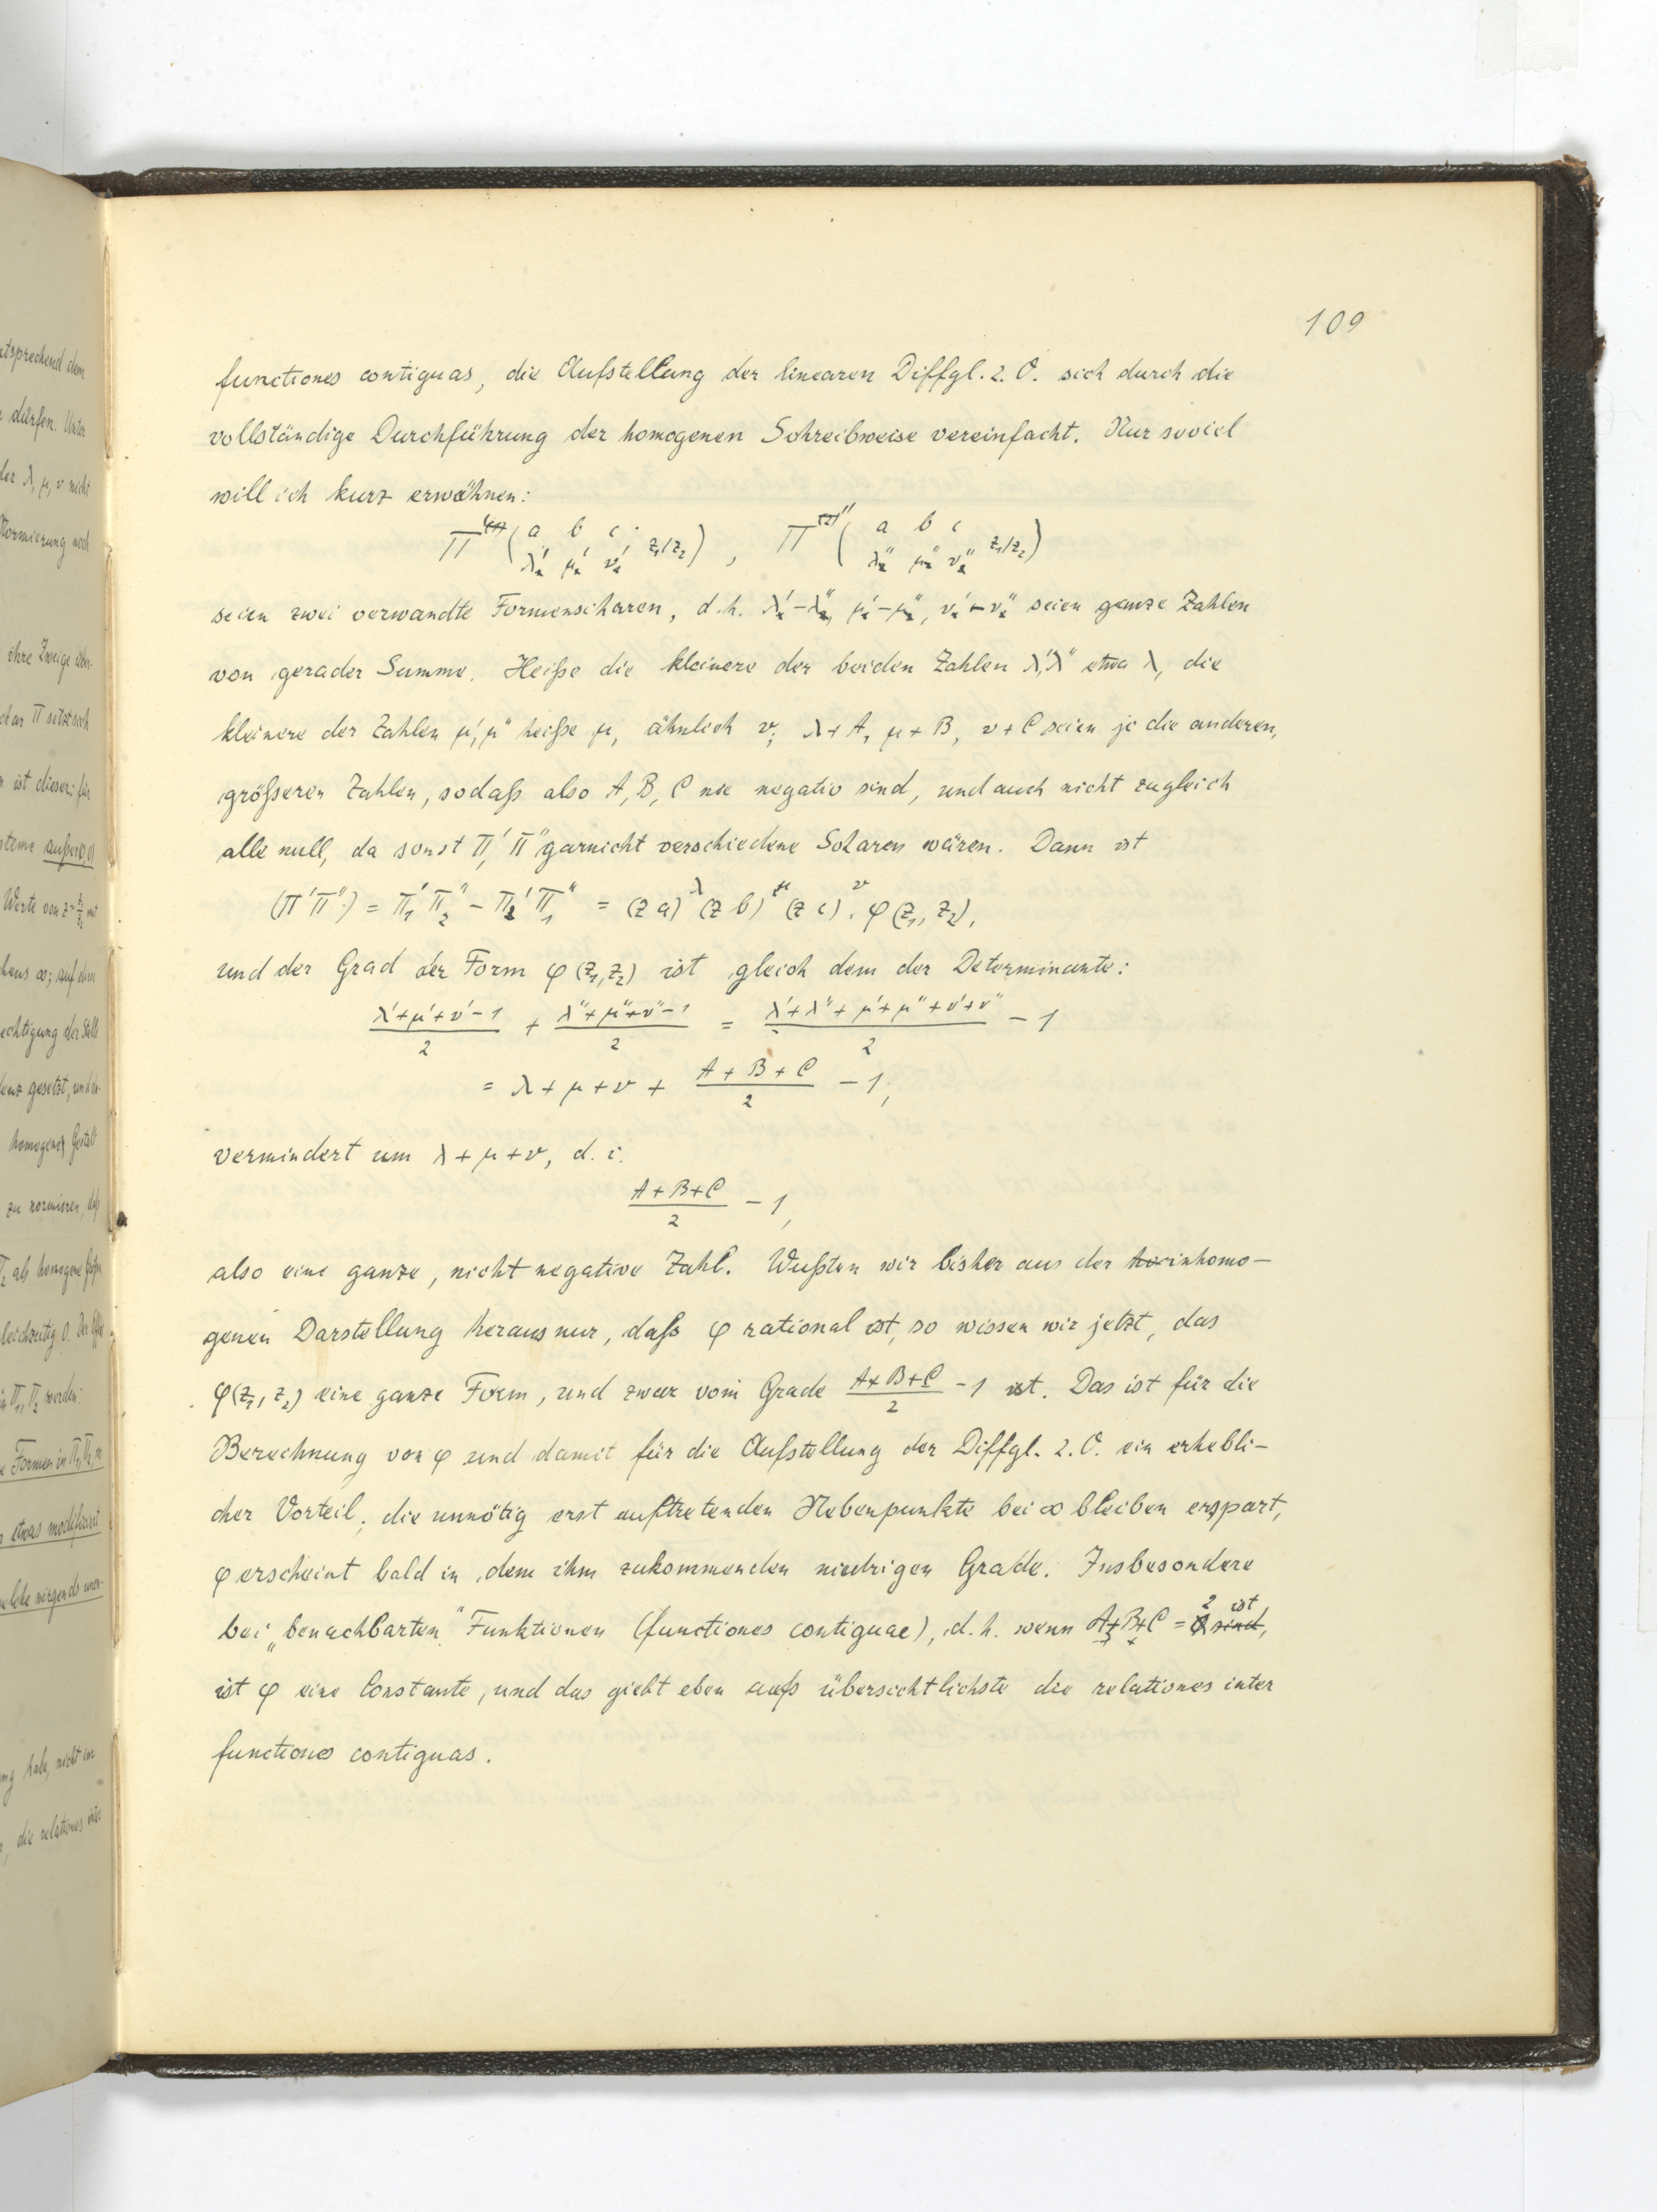 109
functiones contiguas, die Aufstellung der linearen Diffgl. 2. O. sich durch die
vollständige Durchführung der homogenen Schreibweise vereinfacht. Nur soviel
will ich kurz erwähnen:
Π' ( a b c z₁/z₂ ) , Π'' ( a b c z₁/z₂ )
λ' μ' ν' λ'' μ'' ν''
seien zwei verwandte Formenscharen, d.h. λ'-λ'', μ'-μ'', ν'-ν'' seien ganze Zahlen
von gerader Summe. Heiße die kleinere der beiden Zahlen λ', λ'' etwa λ, die
kleinere der Zahlen μ', μ'' heiße μ, ähnlich ν; λ+A, μ+B, ν+C seien je die anderen,
größeren Zahlen, sodaß also A, B, C nie negativ sind, und auch nicht zugleich
alle null, da sonst Π', Π'' garnicht verschiedene Scharen wären. Dann ist
(Π'Π'') = Π₁' Π₂'' - Π₂' Π₁'' = (z a)^λ (z b)^μ (z c)^ν . φ(z₁, z₂),
und der Grad der Form φ(z₁,z₂) ist gleich dem der Determinante:
(λ'+μ'+ν'-1)/2 + (λ''+μ''+ν''-1)/2 = (λ'+λ''+μ'+μ''+ν'+ν'')/2 - 1
= λ+μ+ν + (A+B+C)/2 - 1,
vermindert um λ+μ+ν, d. i.
(A+B+C)/2 - 1,
also eine ganze, nicht negative Zahl. Wußten wir bisher aus der inhomo-
genen Darstellung heraus nur, daß φ rational ist, so wissen wir jetzt, das
φ(z₁, z₂) eine ganze Form, und zwar vom Grade (A+B+C)/2 - 1 ist. Das ist für die
Berechnung von φ und damit für die Aufstellung der Diffgl. 2. O. ein erhebli-
cher Vorteil; die unnötig erst auftretenden Nebenpunkte bei ∞ bleiben erspart,
φ erscheint bald in dem ihm zukommenden niedrigen Grade. Insbesondere
bei „benachbarten" Funktionen (functiones contiguae), d.h. wenn A+B+C = 2 ist,
ist φ eine Constante, und das giebt eben aufs übersichtlichste die relationes inter
functiones contiguas.